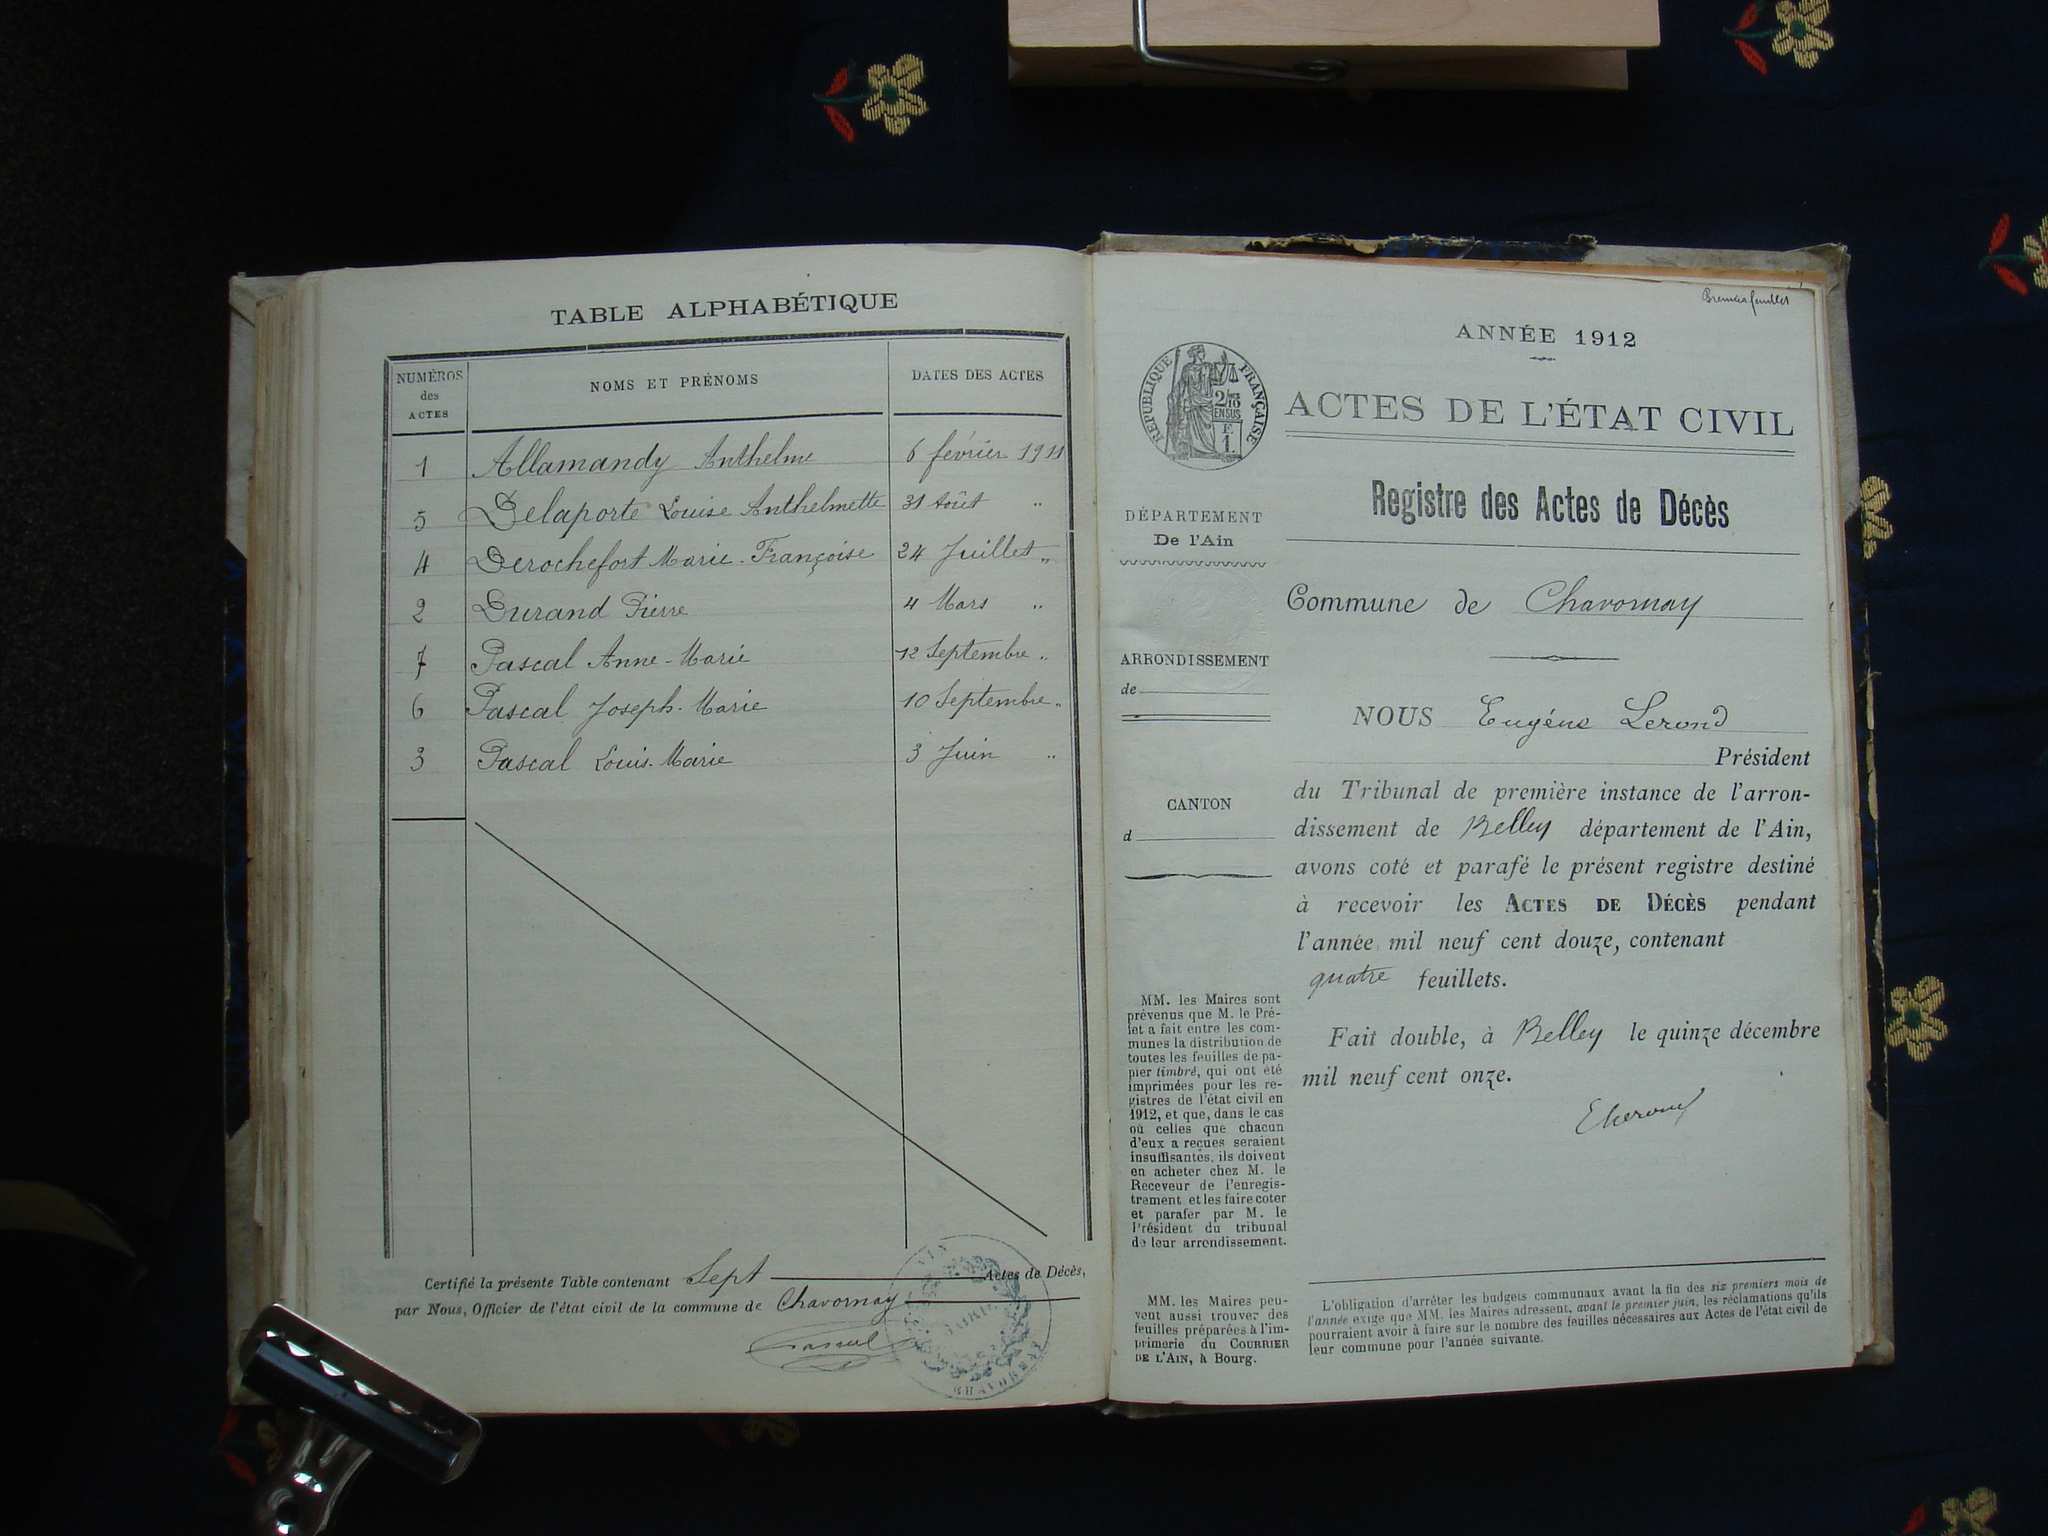 TABLE ALPHABÉTIQUE
NUMÉROS des ACTES
NOMS ET PRÉNOMS
DATES DES ACTES
1 Allamandy Anthelme 6 février 1911
5 Delaporte Louise Anthelmette 31 Août "
4 Derochefort Marie-Françoise 24 Juillet "
2 Durand Pierre 4 Mars "
7 Pascal Anne-Marie 12 Septembre "
6 Pascal Joseph-Marie 10 Septembre "
3 Pascal Louis-Marie 3 Juin "
Certifié la présente Table contenant Sept Actes de Décès,
par Nous, Officier de l'état civil de la commune de Chavornay
Pascal
Premier feuillet
ANNÉE 1912
RÉPUBLIQUE FRANÇAISE
ACTES DE L'ÉTAT CIVIL
Registre des Actes de Décès
DÉPARTEMENT
De l'Ain
Commune de Chavornay
ARRONDISSEMENT
de
CANTON
d
NOUS Eugène Lerond
Président
du Tribunal de première instance de l'arron-
dissement de Belley département de l'Ain,
avons coté et parafé le présent registre destiné
à recevoir les ACTES DE DÉCÈS pendant
l'année mil neuf cent douze, contenant
quatre feuillets.
Fait double, à Belley le quinze décembre
mil neuf cent onze.
MM. les Maires sont
prévenus que M. le Pré-
fet a fait entre les com-
munes la distribution de
toutes les feuilles de pa-
pier timbré, qui ont été
imprimées pour les re-
gistres de l'état civil en
1912, et que, dans le cas
où celles que chacun
d'eux a reçues seraient
insuffisantes, ils doivent
en acheter chez M. le
Receveur de l'enregis-
trement et les faire coter
et parafer par M. le
Président du tribunal
de leur arrondissement.
MM. les Maires peu-
vent aussi trouver des
feuilles préparées à l'im-
primerie du COURRIER
DE L'AIN, à Bourg.
L'obligation d'arrêter les budgets communaux avant la fin des six premiers mois de
l'année exige que MM. les Maires adressent, avant le premier juin, les réclamations qu'ils
pourraient avoir à faire sur le nombre des feuilles nécessaires aux Actes de l'état civil de
leur commune pour l'année suivante.